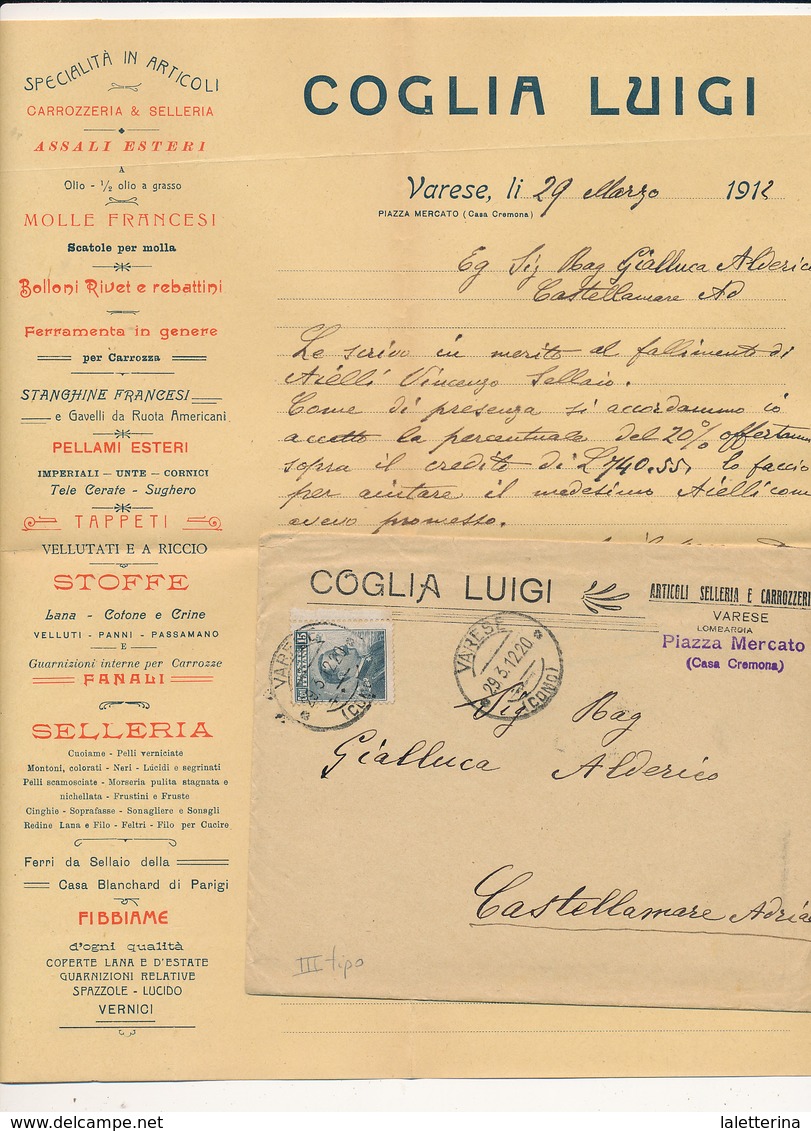 SPECIALITÀ IN ARTICOLI
CARROZZERIA & SELLERIA
ASSALI ESTERI
A
Olio - ½ olio a grasso
MOLLE FRANCESI
Scatole per molla
Bolloni Rivet e rebattini
Ferramenta in genere
per Carrozza
STANGHINE FRANCESI
e Gavelli da Ruota Americani
PELLAMI ESTERI
IMPERIALI - UNTE - CORNICI
Tele Cerate - Sughero
TAPPETI
VELLUTATI E A RICCIO
STOFFE
Lana - Cotone e Crine
VELLUTI - PANNI - PASSAMANO
E
Guarnizioni interne per Carrozze
FANALI
SELLERIA
Cuoiame - Pelli verniciate
Montoni, colorati - Neri - Lucidi e segrinati
Pelli scamosciate - Morseria pulita stagnata e
nichellata - Frustini e Fruste
Cinghie - Soprafasse - Sonagliere e Sonagli
Redine Lana e Filo - Feltri - Filo per Cucire
Ferri da Sellaio della
Casa Blanchard di Parigi
FIBBIAME
d'ogni qualità
COPERTE LANA E D'ESTATE
GUARNIZIONI RELATIVE
SPAZZOLE - LUCIDO
VERNICI
COGLIA LUIGI
Varese, li 29 Marzo 1912
PIAZZA MERCATO (Casa Cremona)
Eg Sig Rag Gialluca Alderico
Castellamare Ad
Le scrivo in merito al fallimento di
Aielli Vincenzo Sellaio.
Come di presenza si accordammo io
accetto la percentuale del 20% offertami
sopra il credito di L 740.55, lo faccio
per aiutare il medesimo Aielli com
avevo promesso.
COGLIA LUIGI
ARTICOLI SELLERIA E CARROZZERI
VARESE
LOMBARDIA
Piazza Mercato
(Casa Cremona)
VARESE
29.3.12.20
(COMO)
15
VARESE
29.3.12.20
(COMO)
Sig Rag
Gialluca Alderico
Castellamare Adria
III tipo
delcampe.net
laletterina